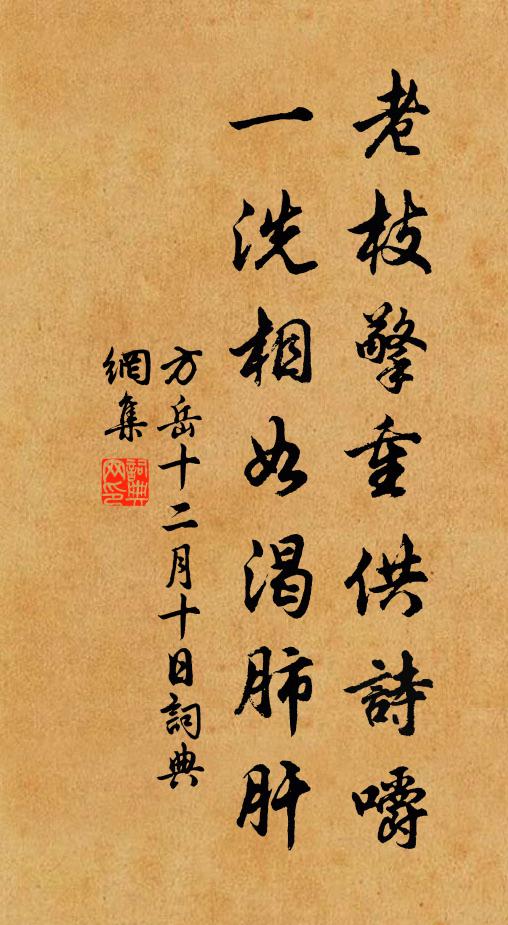 老枝擎重供詩嚼
一洗相如渴肺肝
方岳十二月十日詞典
網集
詞典網印